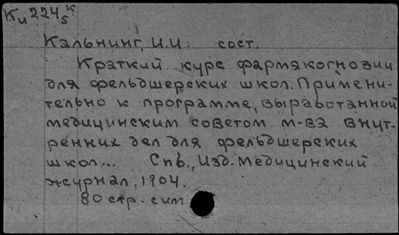 Ки 224 к/5
Кальнинг, И.И. сост.
Краткий курс фармакогнозии
для фельдшерских школ. Примени-
тельно к программе, выработанной
медицинским советом м-ва внут-
ренних дел для фельдшерских
школ... Спб., Изд. Медицинский
журнал, 1904.
80 стр. сим